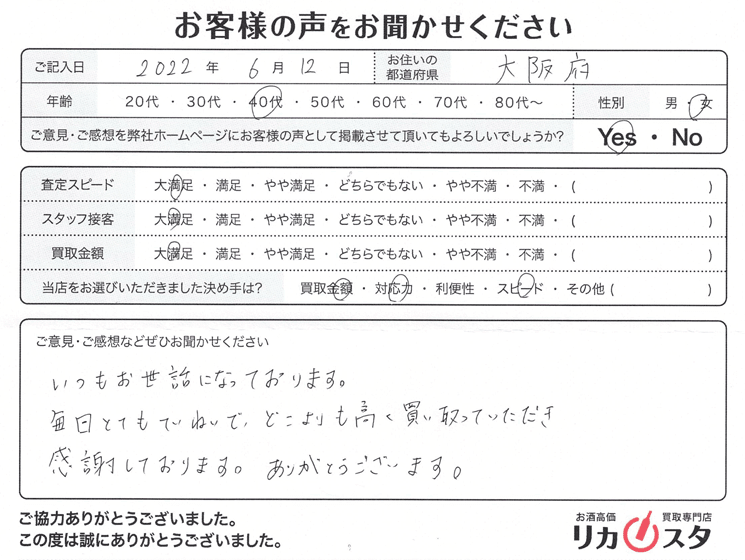 お客様の声をお聞かせください
ご記入日 2022 年 6 月 12 日 お住いの都道府県 大阪府
年齢 20代 ・ 30代 ・ 40代 ・ 50代 ・ 60代 ・ 70代 ・ 80代〜 性別 男 ・ 女
ご意見・ご感想を弊社ホームページにお客様の声として掲載させて頂いてもよろしいでしょうか? Yes ・ No
査定スピード 大満足 ・ 満足 ・ やや満足 ・ どちらでもない ・ やや不満 ・ 不満 ・ ( )
スタッフ接客 大満足 ・ 満足 ・ やや満足 ・ どちらでもない ・ やや不満 ・ 不満 ・ ( )
買取金額 大満足 ・ 満足 ・ やや満足 ・ どちらでもない ・ やや不満 ・ 不満 ・ ( )
当店をお選びいただきました決め手は? 買取金額 ・ 対応力 ・ 利便性 ・ スピード ・ その他 ( )
ご意見・ご感想などぜひお聞かせください
いつもお世話になっております。
毎日とてもていねいで、どこよりも高く買い取っていただき
感謝しております。ありがとうございます。
ご協力ありがとうございました。
この度は誠にありがとうございました。
お酒高価 買取専門店
リカスタ